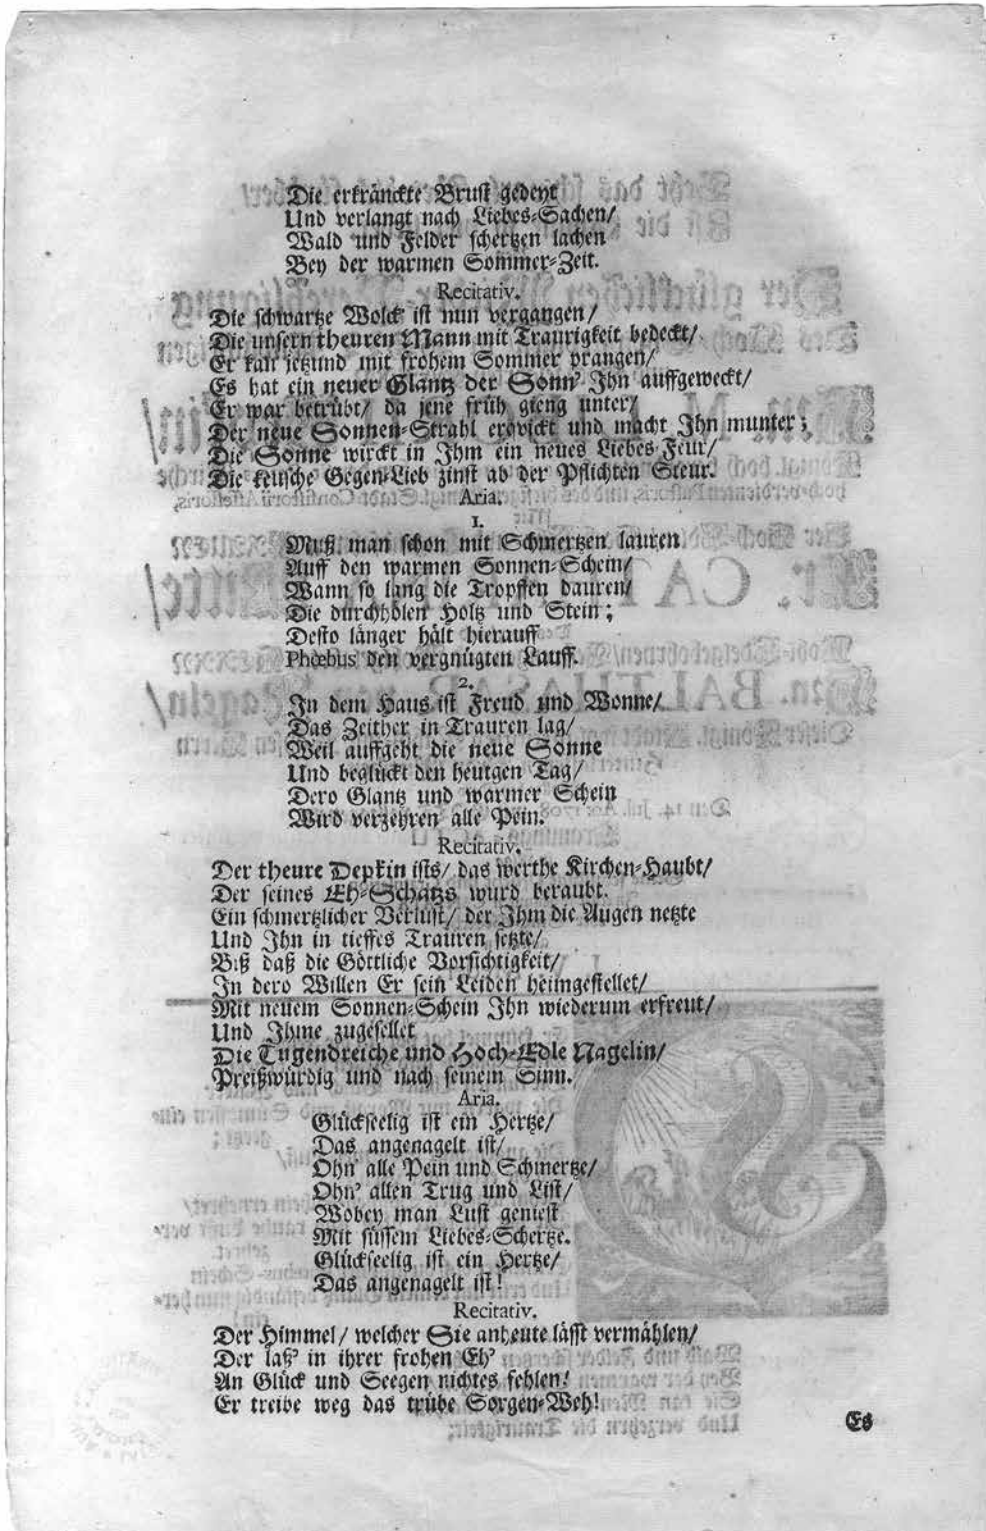 Die erkränckte Brust gedeyt
Und verlangt nach Liebes-Sachen/
Wald und Felder schertzen lachen
Bey der warmen Sommer-Zeit.
Recitativ.
Die schwartze Wolck ist nun vergangen/
Die unsern theuren Mann mit Traurigkeit bedeckt/
Er kan jetzund mit frohem Sommer prangen/
Es hat ein neuer Glantz der Sonn' Ihn auffgeweckt/
Er war betrübt/ da jene früh gieng unter/
Der neue Sonnen-Strahl erqvickt und macht Ihn munter;
Die Sonne wirckt in Ihm ein neues Liebes-Feur/
Die keusche Gegen-Lieb zinst ab der Pflichten Steur.
Aria.
1.
Muß man schon mit Schmertzen lauren
Auff den warmen Sonnen-Schein/
Wann so lang die Tropffen dauren/
Die durchhölen Holtz und Stein;
Desto länger hält hierauff
Phœbus den vergnügten Lauff.
2.
In dem Haus ist Freud und Wonne/
Das Zeither in Trauren lag/
Weil auffgeht die neue Sonne
Und beglückt den heutgen Tag/
Dero Glantz und warmer Schein
Wird verzehren alle Pein.
Recitativ.
Der theure Depkin ists/ das werthe Kirchen-Haubt/
Der seines Eh-Schatzs wurd beraubt.
Ein schmertzlicher Verlust/ der Ihm die Augen netzte
Und Ihn in tieffes Trauren setzte/
Biß daß die Göttliche Vorsichtigkeit/
In dero Willen Er sein Leiden heimgestellet/
Mit neuem Sonnen-Schein Ihn wiederum erfreut/
Und Ihme zugesellet
Die Tugendreiche und Hoch-Edle Nagelin/
Preißwürdig und nach seinem Sinn.
Aria.
Glückseelig ist ein Hertze/
Das angenagelt ist/
Ohn' alle Pein und Schmertze/
Ohn' allen Trug und List/
Wobey man Lust geniest
Mit süssem Liebes-Schertze.
Glückseelig ist ein Hertze/
Das angenagelt ist!
Recitativ.
Der Himmel/ welcher Sie anheute lässt vermählen/
Der laß' in ihrer frohen Eh'
An Glück und Seegen nichtes fehlen!
Er treibe weg das trübe Sorgen-Weh!
Es